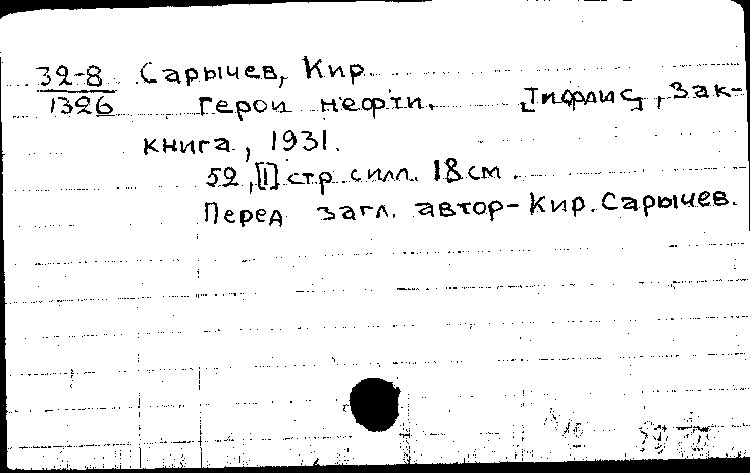 32-8 Сарычев, Кир.
1326 Герои нефти. [Тифлис], Зак-
книга, 1931.
52, [1] стр. с илл. 18 см.
Перед загл. автор - Кир. Сарычев.